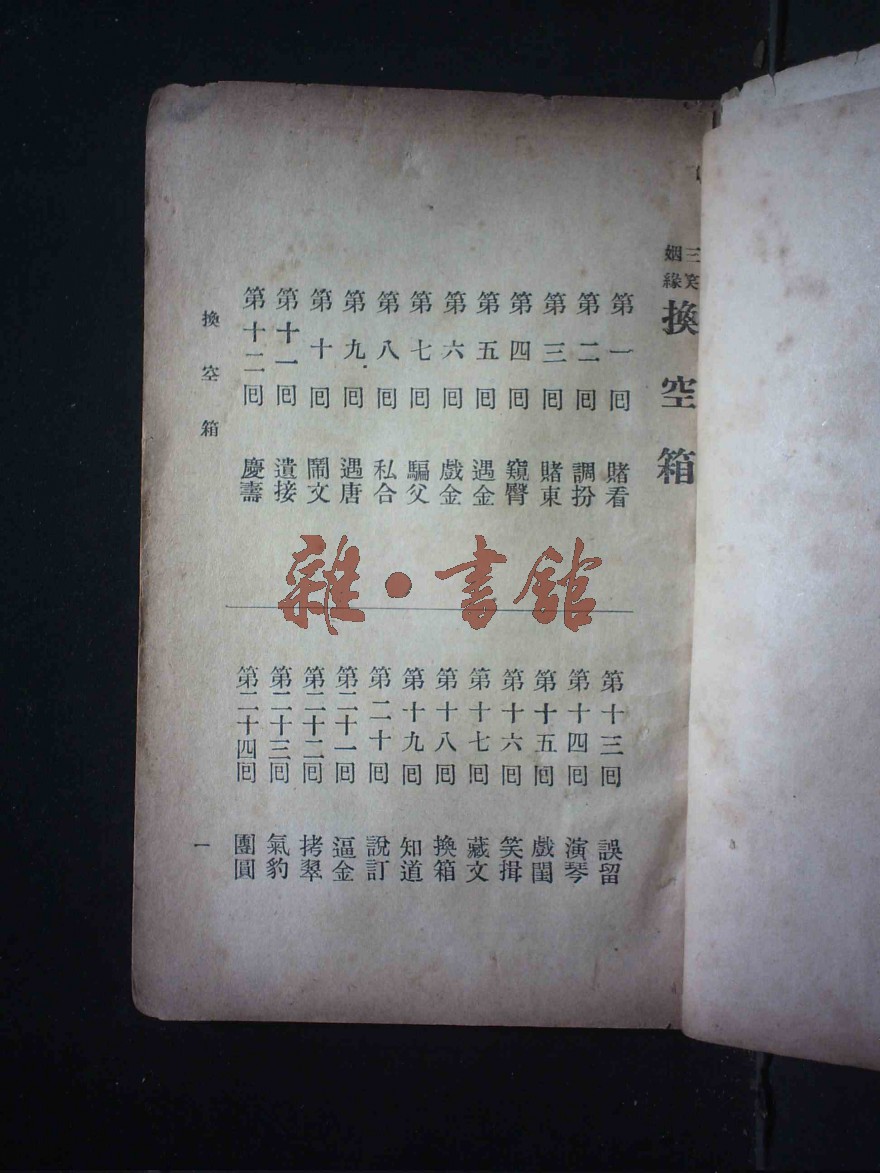 三笑
姻緣
換空箱
第一囘 賭看
第二囘 調扮
第三囘 賭東
第四囘 窺臀
第五囘 遇金
第六囘 戲金
第七囘 騙父
第八囘 私合
第九囘 遇唐
第十囘 鬧文
第十一囘 遣接
第十二囘 慶壽
第十三囘 誤留
第十四囘 演琴
第十五囘 戲閨
第十六囘 笑揖
第十七囘 藏文
第十八囘 換箱
第十九囘 知道
第二十囘 說訂
第二十一囘 逼金
第二十二囘 拷翠
第二十三囘 氣豹
第二十四囘 團圓
換空箱
一
雜·書館